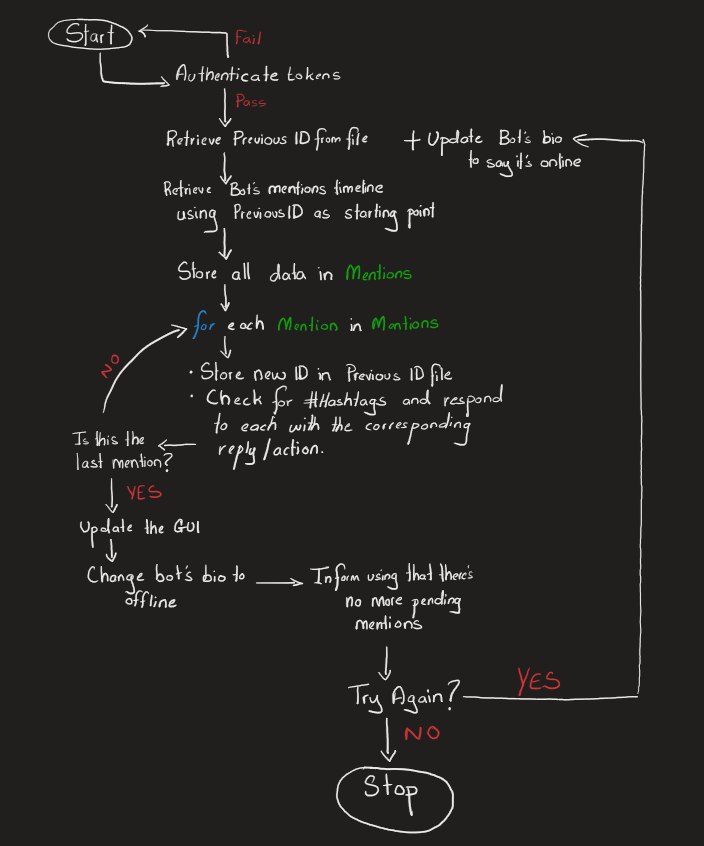 Start
Fail
Authenticate tokens
Pass
Retrieve Previous ID from file
+ Update Bot's bio
to say it's online
Retrieve Bot's mentions timeline
using PreviousID as starting point
Store all data in Mentions
for each Mention in Mentions
NO
• Store new ID in Previous ID file
• Check for #Hashtags and respond
to each with the corresponding
reply/action.
Is this the
last mention?
YES
Update the GUI
Change bot's bio to
offline
Inform using that there's
no more pending
mentions
Try Again?
YES
NO
Stop